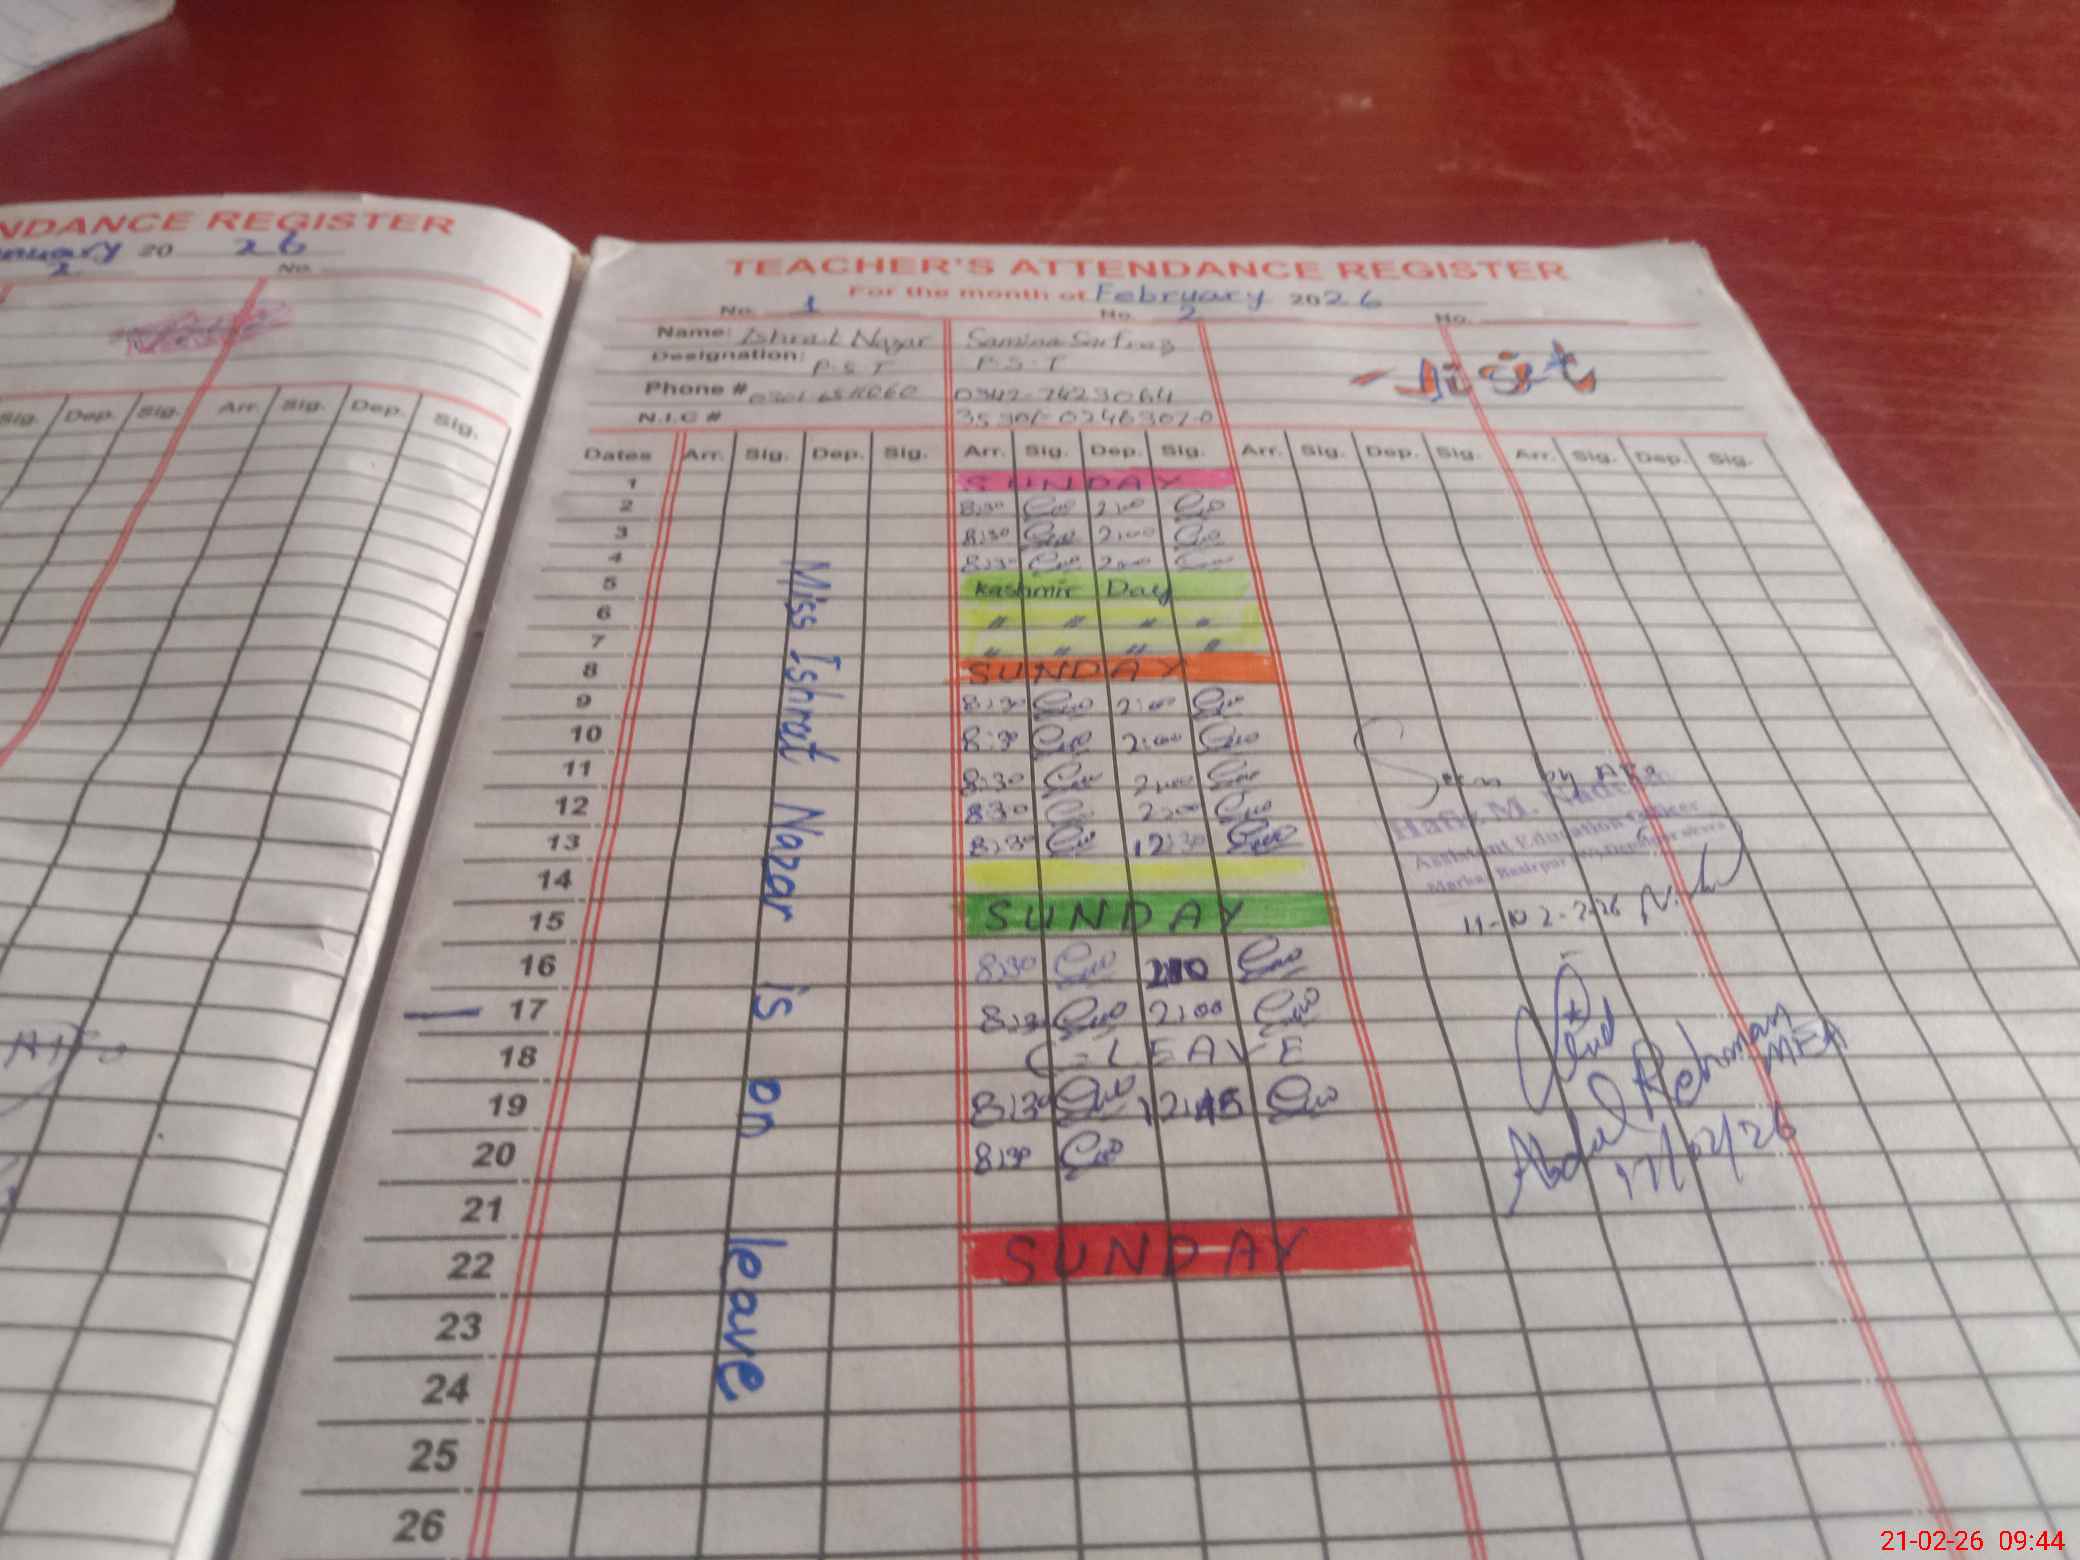 NDANCE REGISTER
20 26
2
No.
Sig. Dep. Sig. Arr. Sig. Dep. Sig.
TEACHER'S ATTENDANCE REGISTER
For the month of February 2026
No. 1 No. 2 No.
Name: Ishrat Nazar Samina Sarfraz
Designation: P.S.T P.S.T
Phone # 0342-7423064
N.I.C #
Dates Arr. Sig. Dep. Sig. Arr. Sig. Dep. Sig. Arr. Sig. Dep. Sig. Arr. Sig. Dep. Sig.
1 SUNDAY
2 8:30 2:00
3 8:30 2:00
4 8:30 2:00
5 Kashmir Day
6 " " " "
7 " " " "
8 SUNDAY
9 8:30 2:00
10 8:30 2:00
11 8:30 2:00
12 8:30 2:00
13 8:30 12:30
14
15 SUNDAY
16 8:30
17 8:30 2:00
18 C-LEAVE
19 8:30 12:45
20 8:30
21
22 SUNDAY
23
24
25
26
Miss Ishrat Nazar is on leave
Seen by AEO
Hafiz M.
Assistant Education Officer
Markaz Basirpur
Abdul Rehman
MEA
17/02/26
21-02-26 09:44